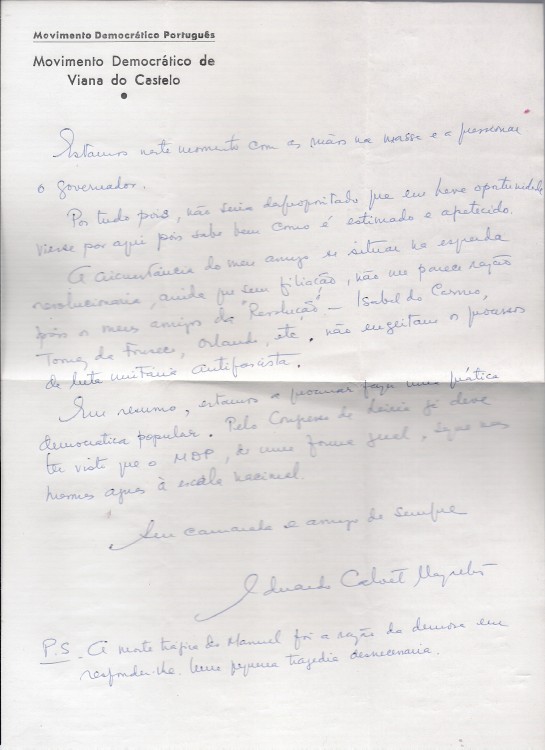 Movimento Democrático Português
Movimento Democrático de
Viana do Castelo
Estamos neste momento com as mãos na massa e a pressionar
o governador.
Por tudo pois, não seria despropositado que em breve oportunidade
viesse por aqui pois sabe bem como é estimado e apetecido.
A circunstância do meu amigo se situar na esquerda
revolucionaria, ainda que sem filiação, não me parece razão
pois os meus amigos da "Revolução" – Isabel do Carmo,
Tomaz da Fonseca, Orlando, etc, não engeitam os processos
de luta unitária antifascista.
Em resumo, estamos a procurar fazer uma prática
democratica popular. Pelo Congresso de Leiria já deve
ter visto que o MDP, de uma forma geral, segue nas
mesmas aguas à escala nacional.
Seu camarada e amigo de sempre
Eduardo
P.S. A morte trágica do Manuel foi a razão da demora em
responder-lhe. Uma pequena tragedia desnecessaria.